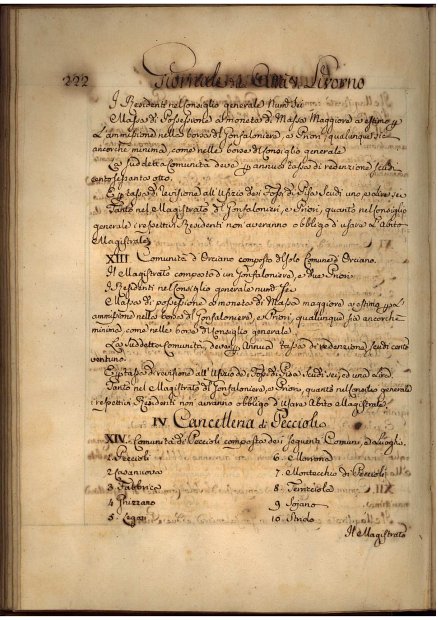 222
Giornale
I Residenti nel Consiglio generale Num.º sei
Massa di Possessione a moneta di Massa Maggiore a estimo p
L'ammissione nella borsa di Gonfaloniere, e Priori qualunque sia
ancorchè minima, come nelle borse di Consiglio generale
La Suddetta Comunità deve p annua tassa di redenzione Scudi
cento settanta otto
E p tassa di revisione all'Ufizio dei Fossi di Pisa Scudi uno e Lire sei
Tanto nel Magistrato di Gonfalonieri, e Priori, quanto nel Consiglio
generale i respettivi Residenti non averanno obbligo d'usare l'abito
Magistrale
XIII Comunità d'Orciano composto del solo Comune d'Orciano.
Il Magistrato composto d'un Gonfaloniere, e due Priori
I Residenti nel Consiglio generale num.º sei
Massa di possessione a moneta di Massa maggiore a estimo p
ammissione nella borsa di Gonfaloniere, e Priori, qualunque sia ancorchè
minima, come nelle borse di Consiglio generale
La Suddetta Comunità deve p Annua tassa di redenzione Scudi cento
ventuno.
E p tassa di revisione all'Ufizio dei Fossi di Pisa Scudi sei, ed una Lira
Tanto nel Magistrato di Gonfaloniere, e Priori, quanto nel Consiglio generale
i respettivi Residenti non avranno obbligo d'usare Abito Magistrale
IV Cancelleria di Peccioli
XIV. Comunità di Peccioli composta dei seguenti Comuni, e Luoghi.
1 Peccioli
2 Casanuova
3 Fabbrica
4 Ghizzano
5 Legoli
6 Montona
7 Montecchio di Peccioli
8 Terricciola
9 Sojano
10 Strido
Il Magistrato